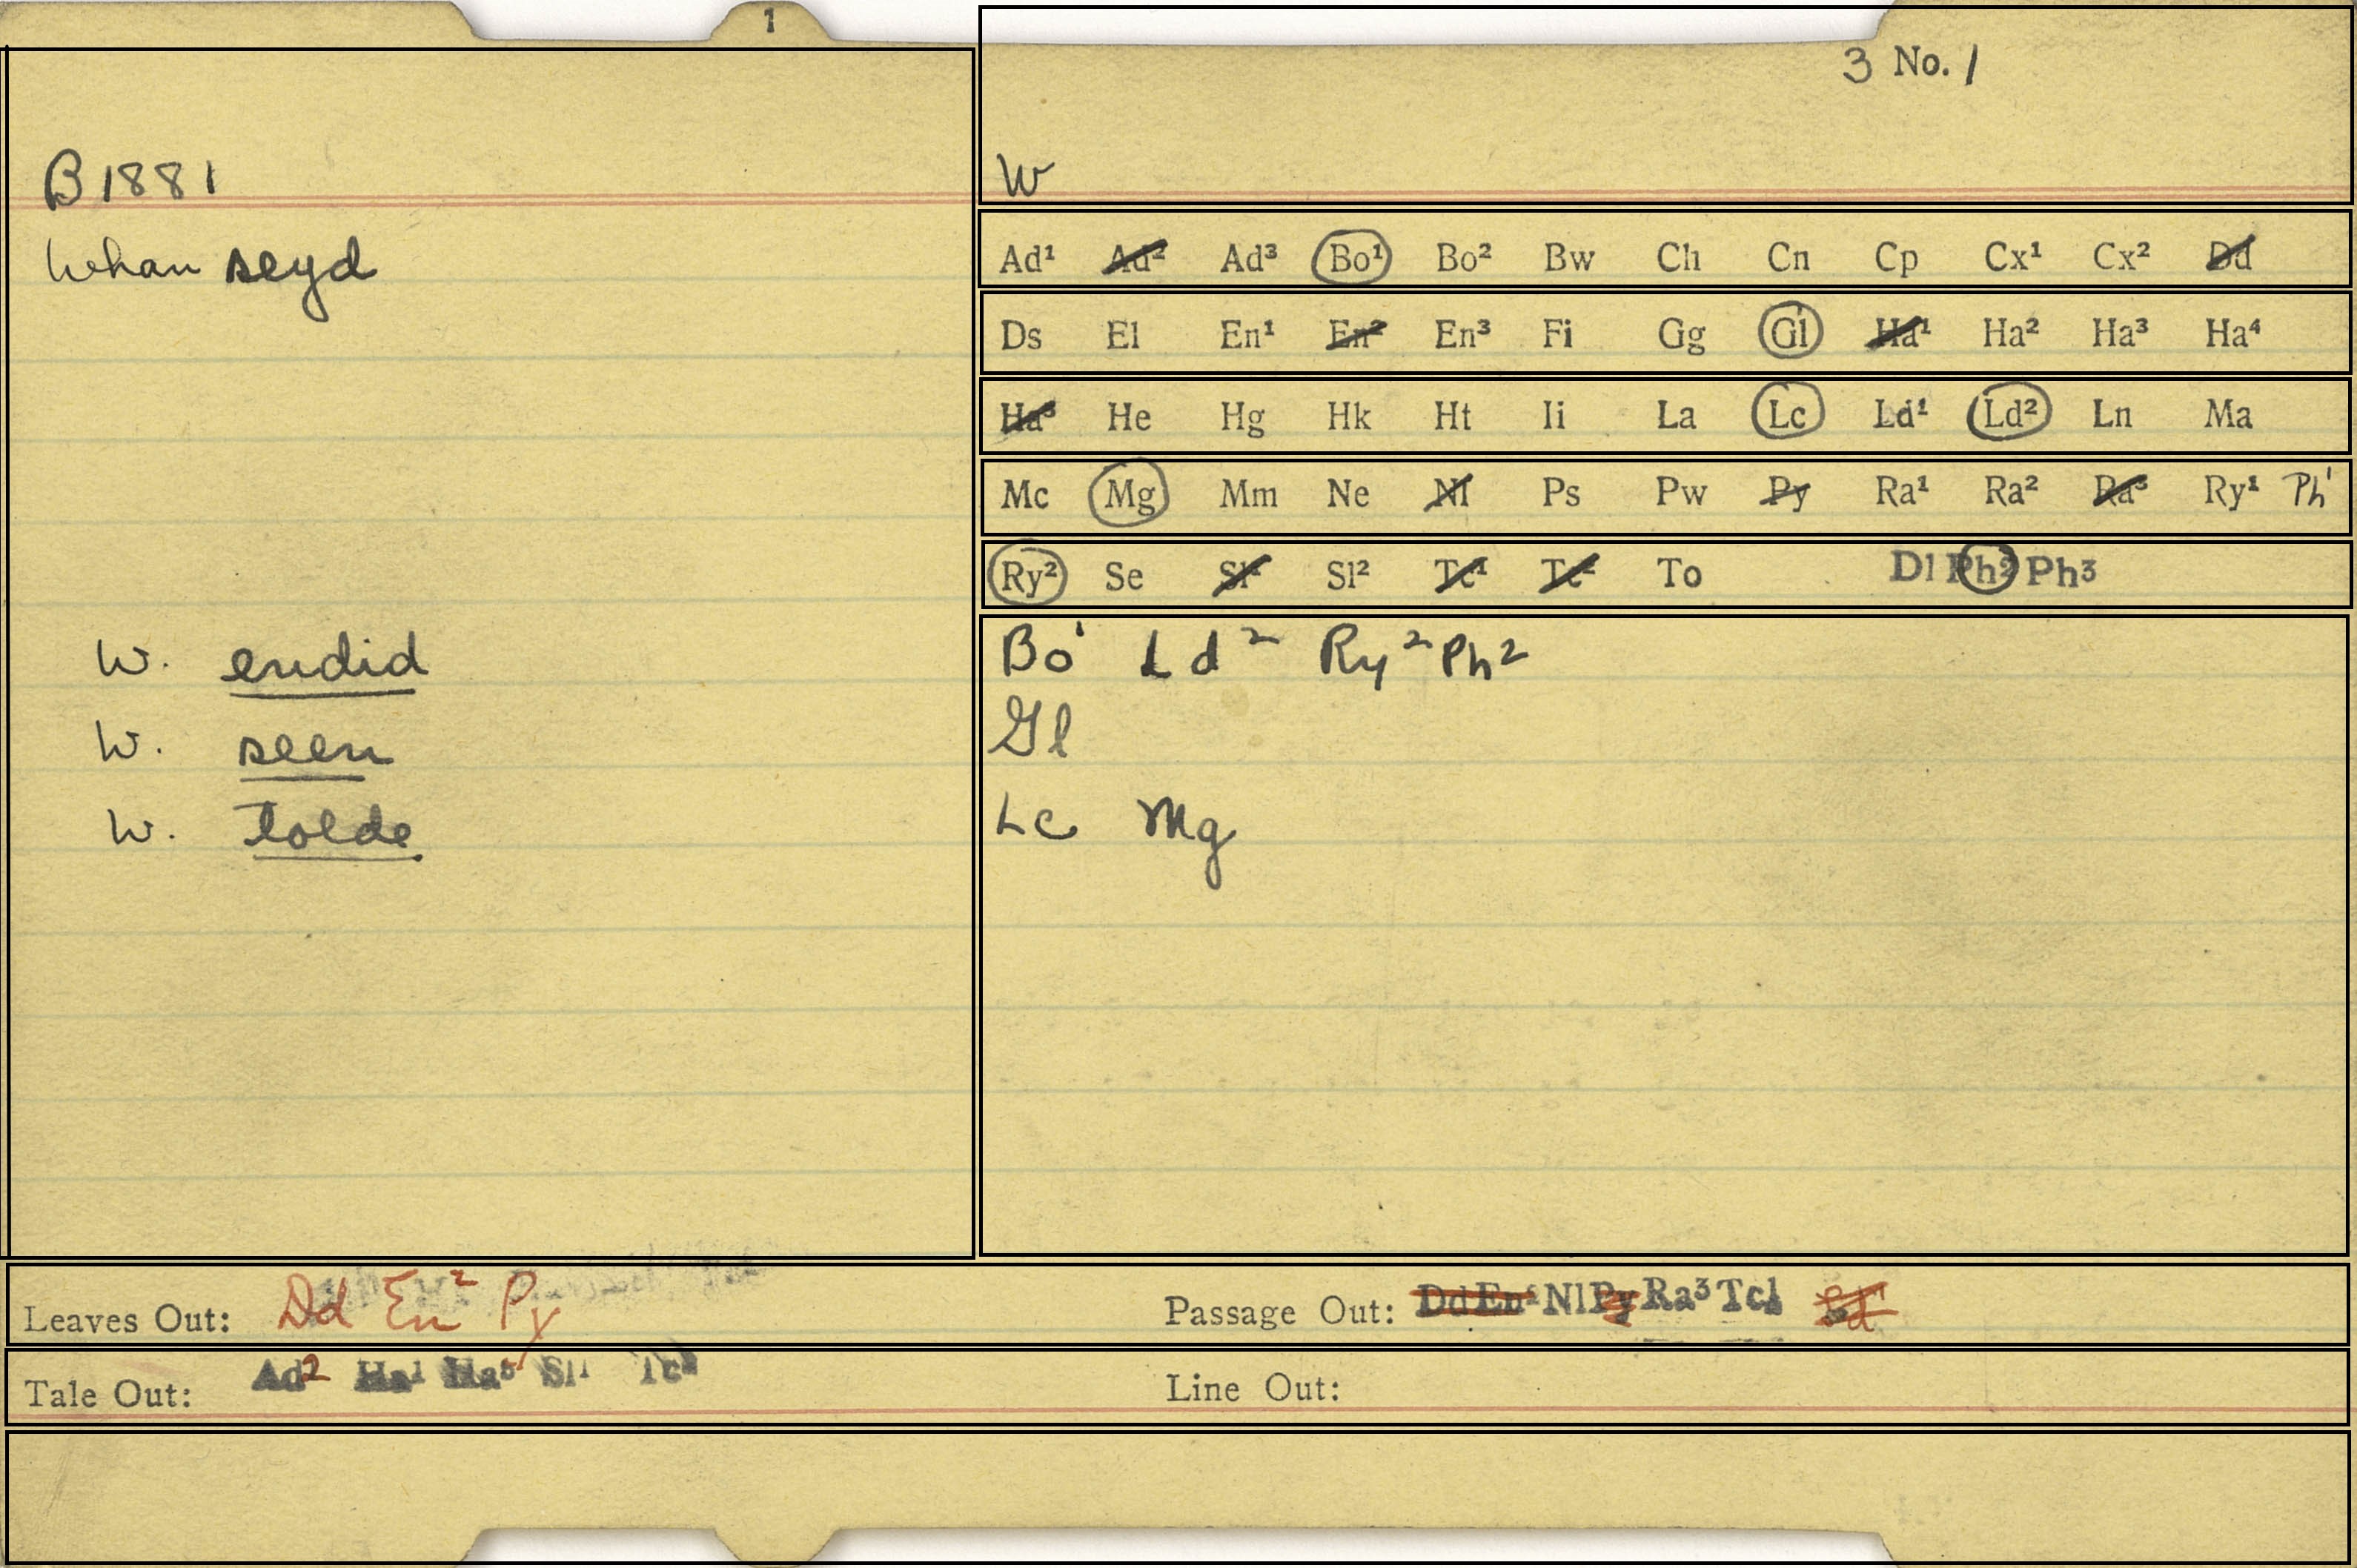 1
3 No. 1
B 1881
W
Whan seyd
Ad¹ Ad² Ad³ Bo¹ Bo² Bw Ch Cn Cp Cx¹ Cx² Dd
Ds El En¹ En² En³ Fi Gg Gl Ha¹ Ha² Ha³ Ha⁴
Ha⁵ He Hg Hk Ht Ii La Lc Ld¹ Ld² Ln Ma
Mc Mg Mm Ne Nl Ps Pw Py Ra¹ Ra² Ra³ Ry¹ Ph¹
Ry² Se Sl¹ Sl² Tc¹ Tc² To Dl Ph² Ph³
W. endid
Bo¹ Ld² Ry² Ph²
W. seen
Gl
W. tolde
Lc Mg
Leaves Out: Dd En² Py
Passage Out: Dd En² Nl Py Ra³ Tc1
Tale Out: Ad2 Ha1 Ha5 Sl1 Tc2
Line Out: